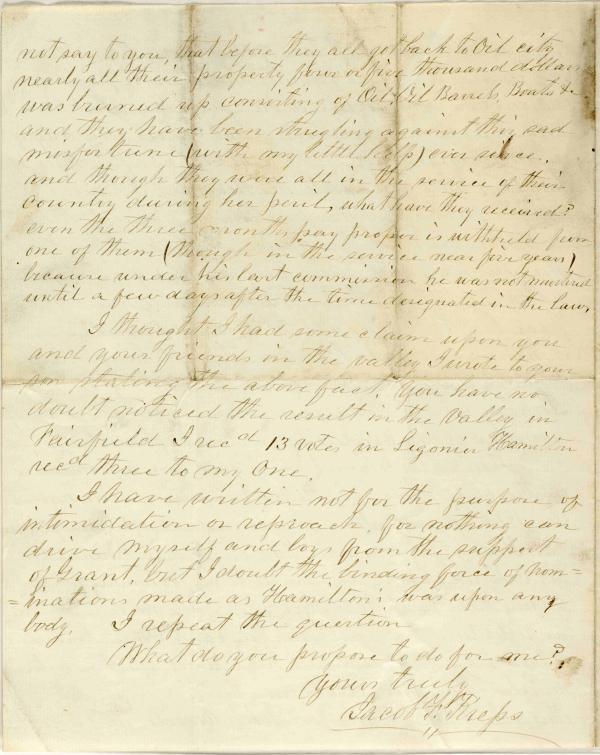 not say to you, that before they all got back to Oil city
nearly all their property four or five thousand dollars
was burned up consisting of Oil, Oil Barrels, Boats &c
and they have been strugling against this sad
misfortune (with my little help) ever since.
and though they were all in the service of their
country during her peril, what have they received?
even the three months pay proper is withheld from
one of them (though in the service near five years)
because under his last commission he was not mustered
until a few days after the time designated in the law.
I thought I had some claim upon you
and your friends in the valley I wrote to your
son stating the above fact. You have no
doubt noticed the result in the Valley in
Fairfield I recd 13 votes in Ligonier Hamilton
recd three to my One.
I have written not for the purpose of
intimidation or reproach, for nothing can
drive myself and boys from the support
of Grant, but I doubt the binding force of nom=
=inations made as Hamilton's was upon any
body. I repeat the question
What do you propose to do for me?
Yours truly
Jacob F. Kreps